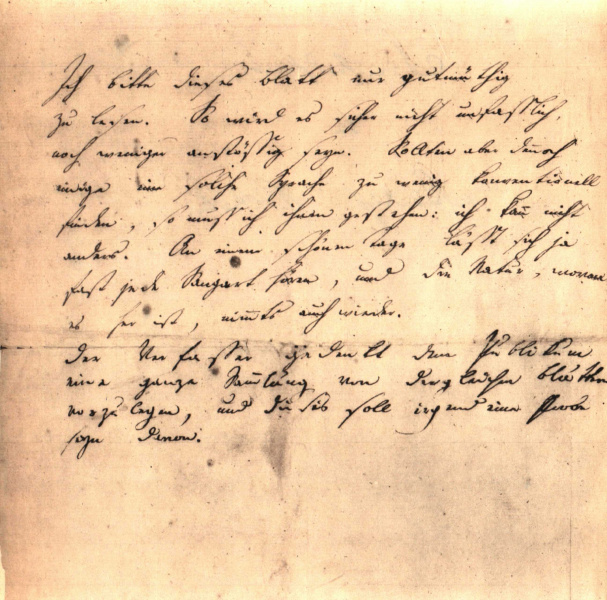 Ich bitte dieses Blatt nur gutmüthig
zu lesen. So wird es sicher nicht unfaßlich,
noch weniger anstößig seyn. Sollten aber dennoch
einige eine solche Sprache zu wenig konventionell
finden, so muß ich ihnen gestehen: ich kan̄ nicht
anders. An einem schönen Tage läßt sich ja
fast jede Sangart hören, und die Natur, wovon
es her ist, nim̄ts auch wieder.
Der Verfasser gedenkt dem Publikum
eine ganze Sam̄lung von dergleichen Blättern
vorzulegen, und dieses soll irgend eine Probe
seyn davon.